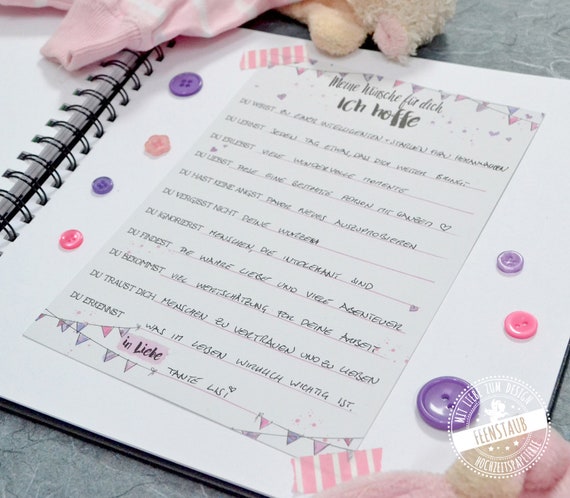 Meine Wünsche für dich
ich hoffe
DU WIRST ZU EINER INTELLIGENTEN + STARKEN FRAU HERANWACHSEN
DU LERNST JEDEN TAG ETWAS, DAS DICH WEITER BRINGT
DU ERLEBST VIELE WUNDERVOLLE MOMENTE
DU LIEBST EINE BESTIMMTE PERSON MIT GANZEM ♡
DU HAST KEINE ANGST DAVOR NEUES AUSZUPROBIEREN
DU VERGISST NICHT DEINE WURZELN
DU IGNORIERST MENSCHEN, DIE INTOLERANT SIND
DU FINDEST DIE WAHRE LIEBE UND VIELE ABENTEUER
DU BEKOMMST VIEL WERTSCHÄTZUNG FÜR DEINE ARBEIT
DU TRAUST DICH, MENSCHEN ZU VERTRAUEN UND ZU LIEBEN
DU ERKENNST WAS IM LEBEN WIRKLICH WICHTIG IST
in Liebe TANTE LISI ♡
MIT LIEBE ZUM DESIGN
FEENSTAUB
HOCHZEITSPAPETERIE